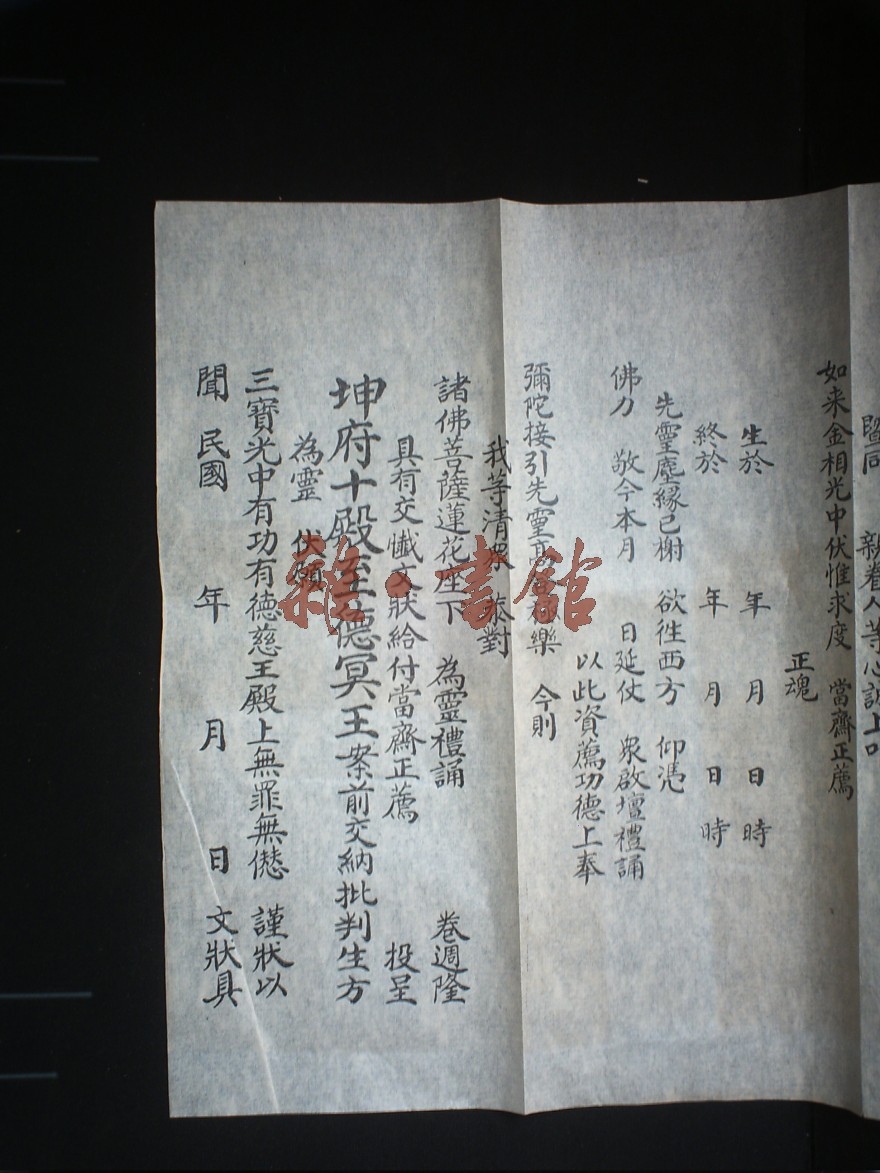 暨同 親眷人等心誠上叩
如来金相光中伏惟求度 當齋正薦
正魂
生於 年 月 日 時
終於 年 月 日 時
先靈塵緣已榭 欲徃西方 仰憑
佛力 敬今本月 日延仗 衆啟壇禮誦
以此資薦功德上奉
彌陀接引先靈高 極樂 今則
我等清衆 對
諸佛菩薩蓮花座下 為靈禮誦 卷週隆
具有交懺文狀給付當齋正薦 投呈
坤府十殿至德冥王案前交納批判生方
為靈 伏願
三寶光中有功有德慈王殿上無罪無愆 謹狀以
聞 民國 年 月 日 文狀具
雜·書館